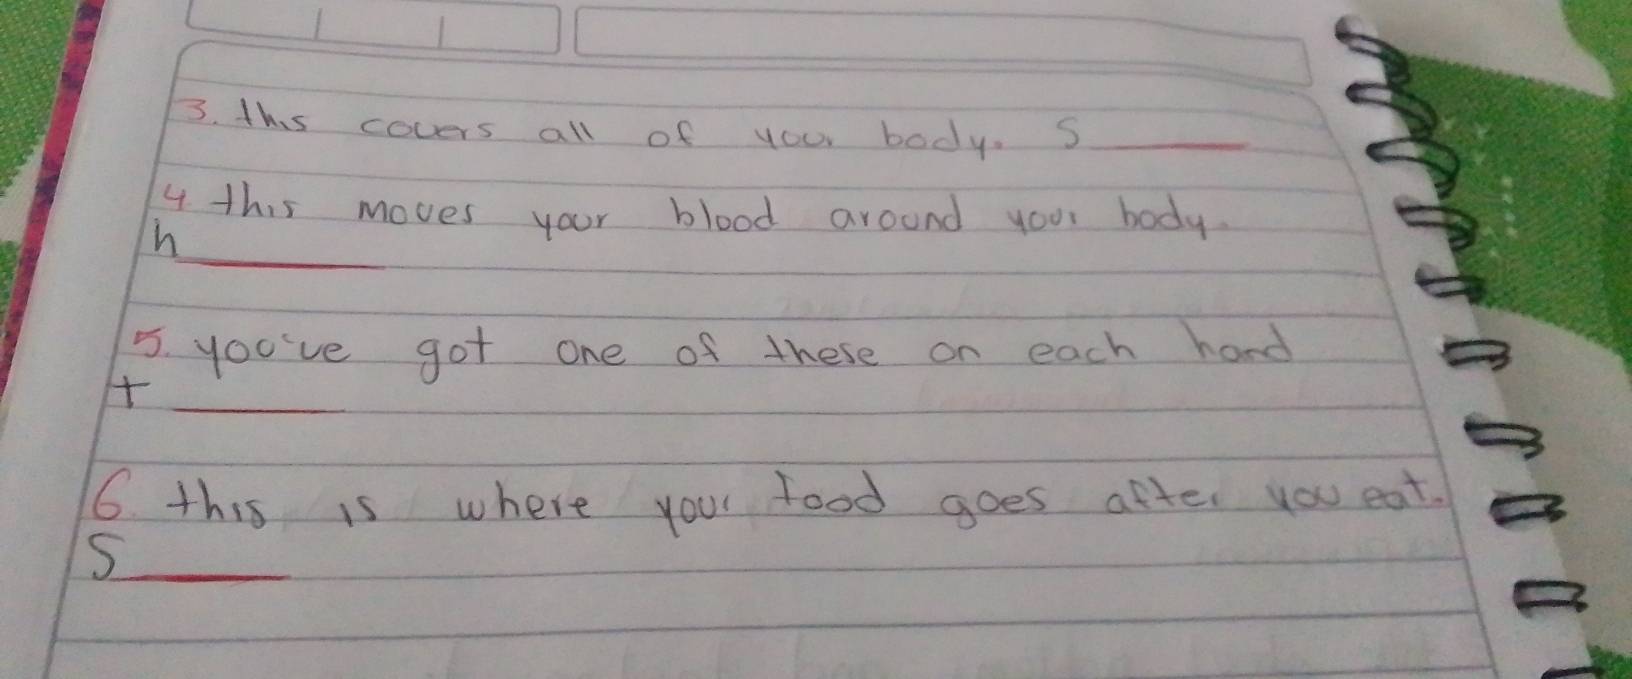 3. this covers all of your body. S______
4 this moves your blood around your body.
h______
5. you've got one of these on each hand
t ______
6 this is where your food goes after you eat.
S______